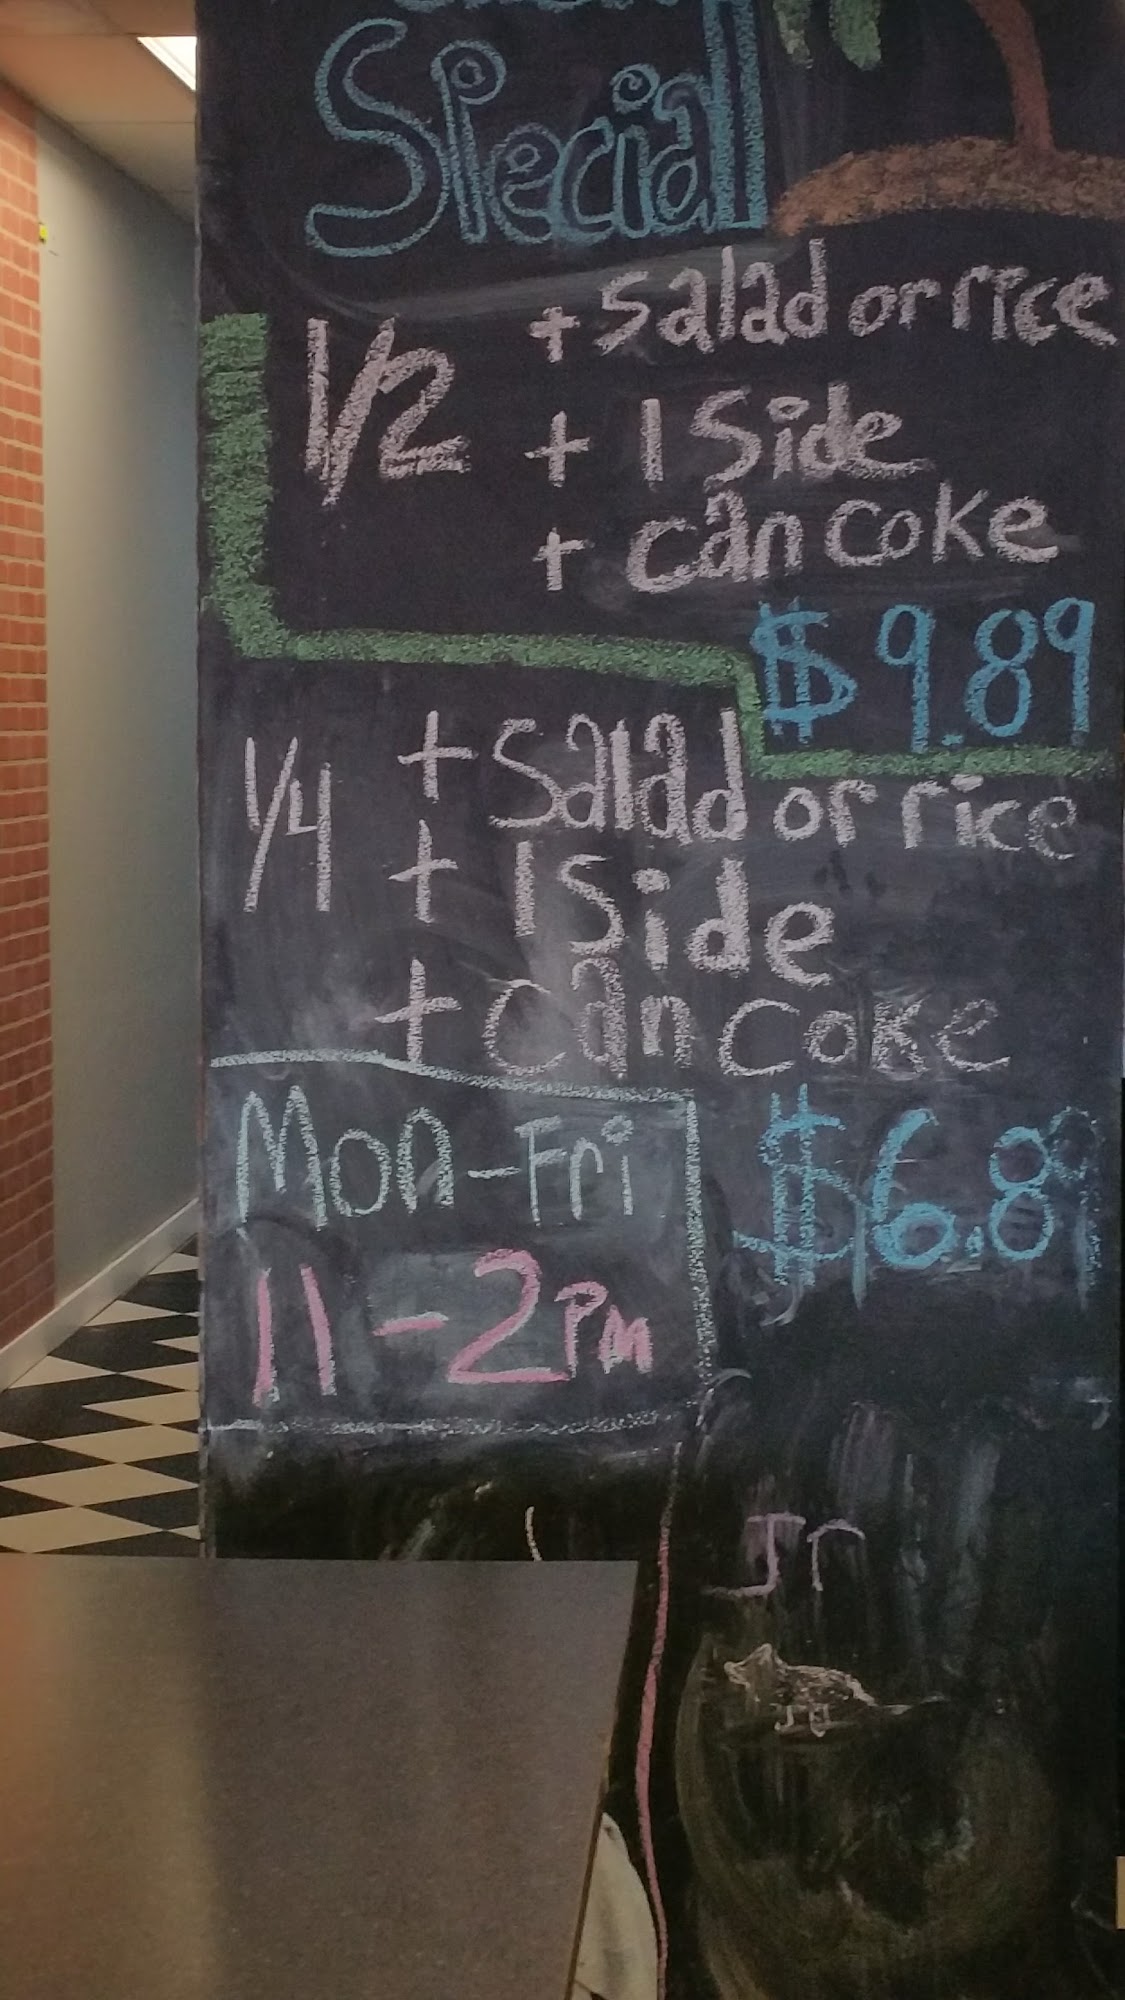 Special
1/2 + salad or rice
+ 1 Side
+ can coke
$ 9.89
1/4 + salad or rice
+ 1 Side
+ can coke
Mon-Fri $6.89
11-2PM